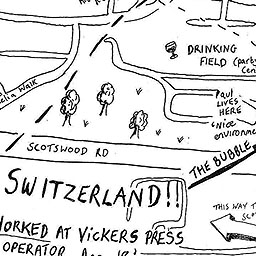 DRINKING
FIELD (parks
Cen
elia WALK
Paul
LIVES
HERE
'Nice
environme
SCOTSWOOD RD
THE BUBBLE
SWITZERLAND!!
THIS WAY T
SCO
WORKED AT VICKERS PRESS
OPERATOR